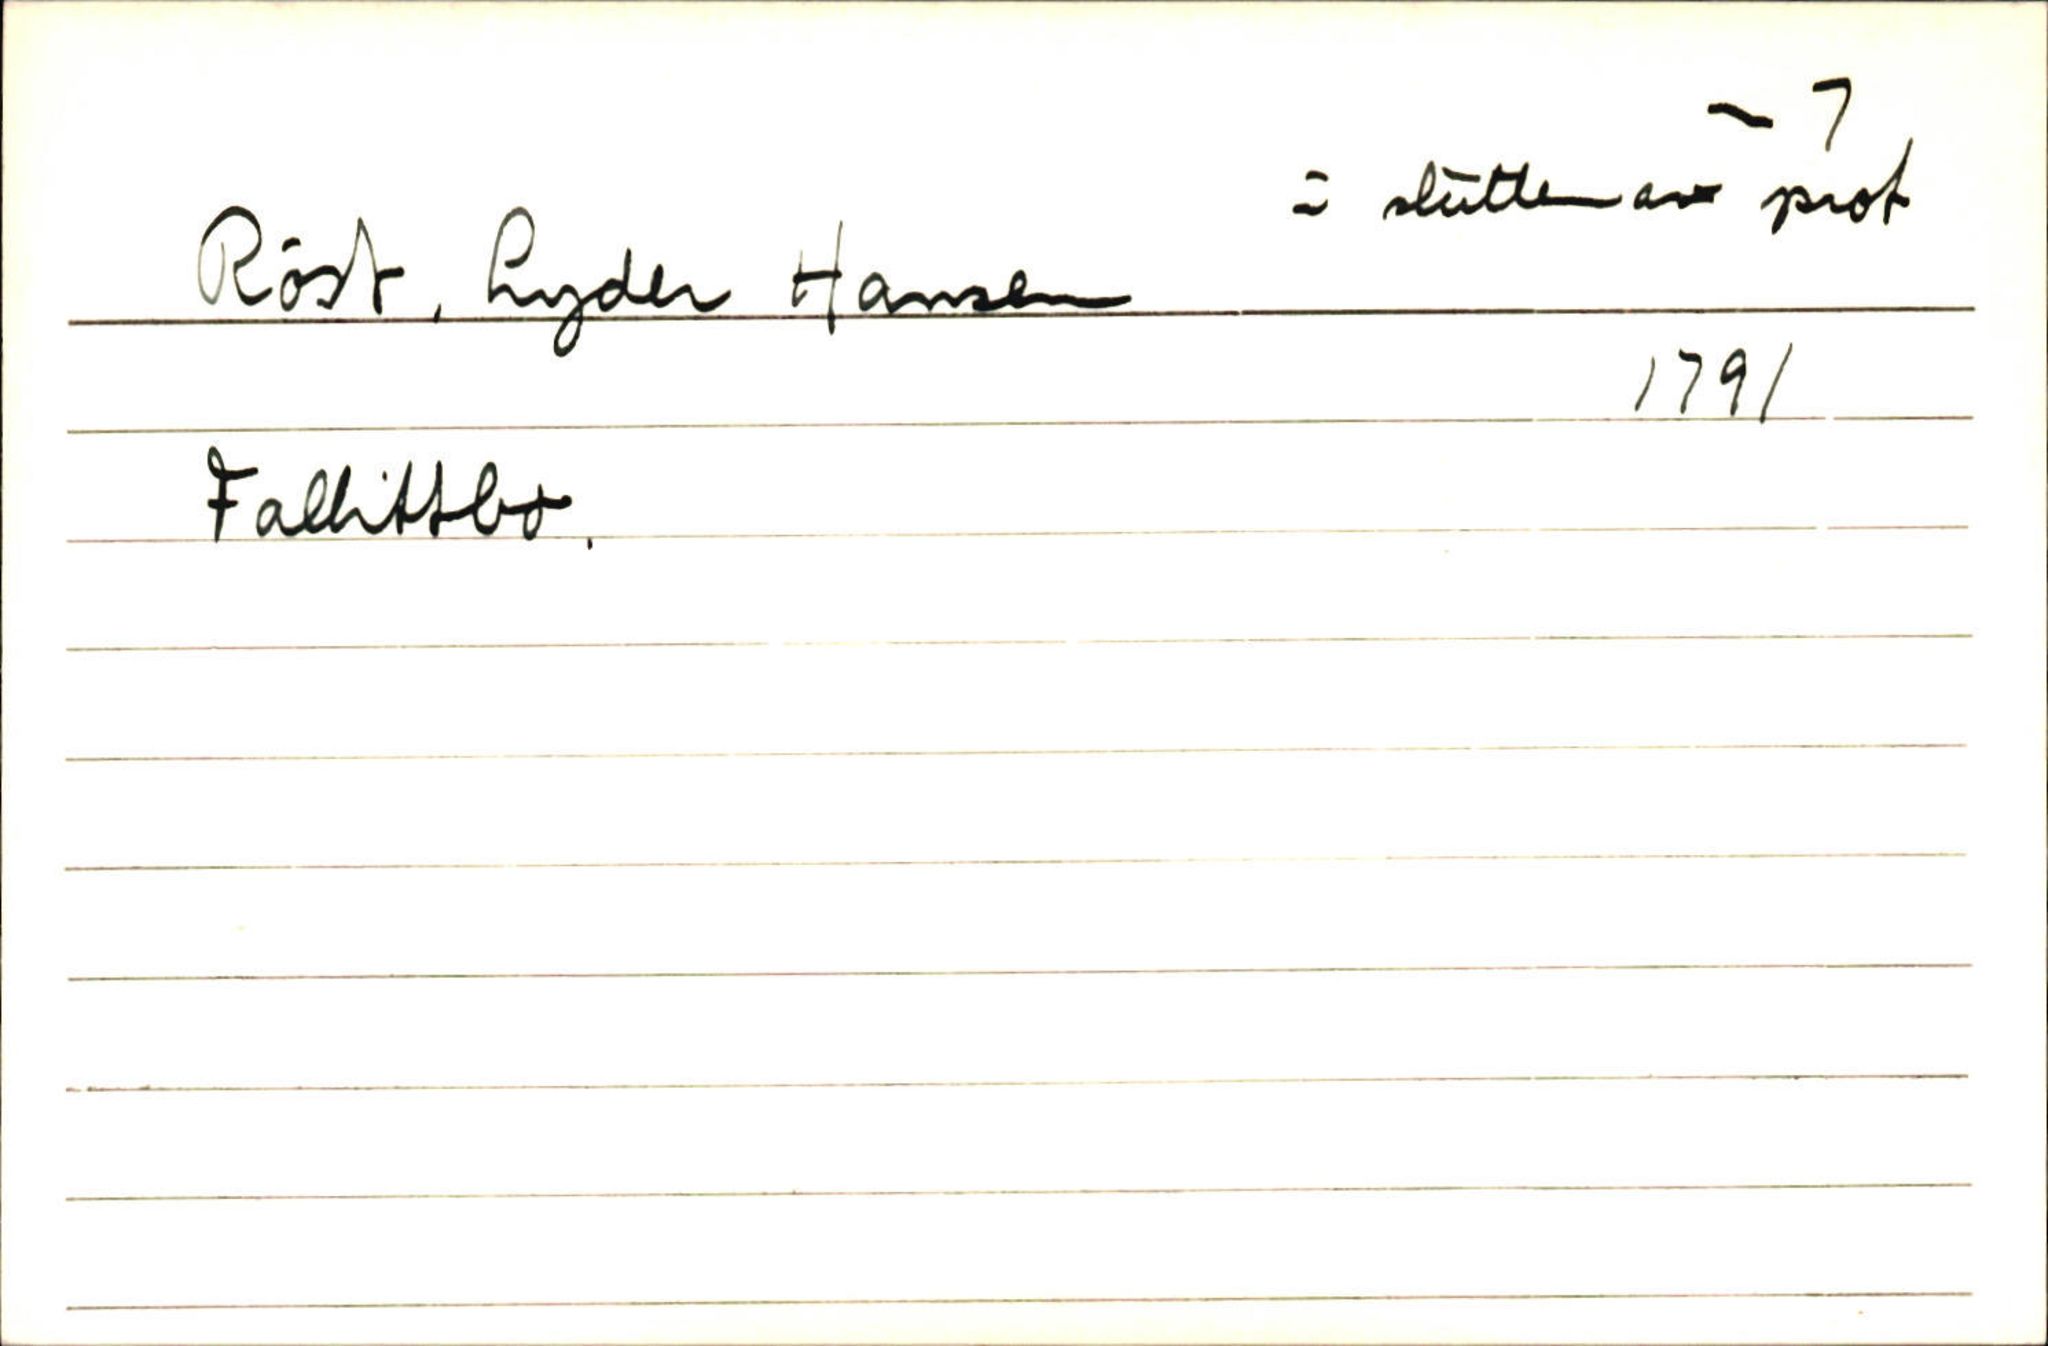 - 7
= slutten av prot
Röst, Lyder Hansen
1791
Fallittbo.